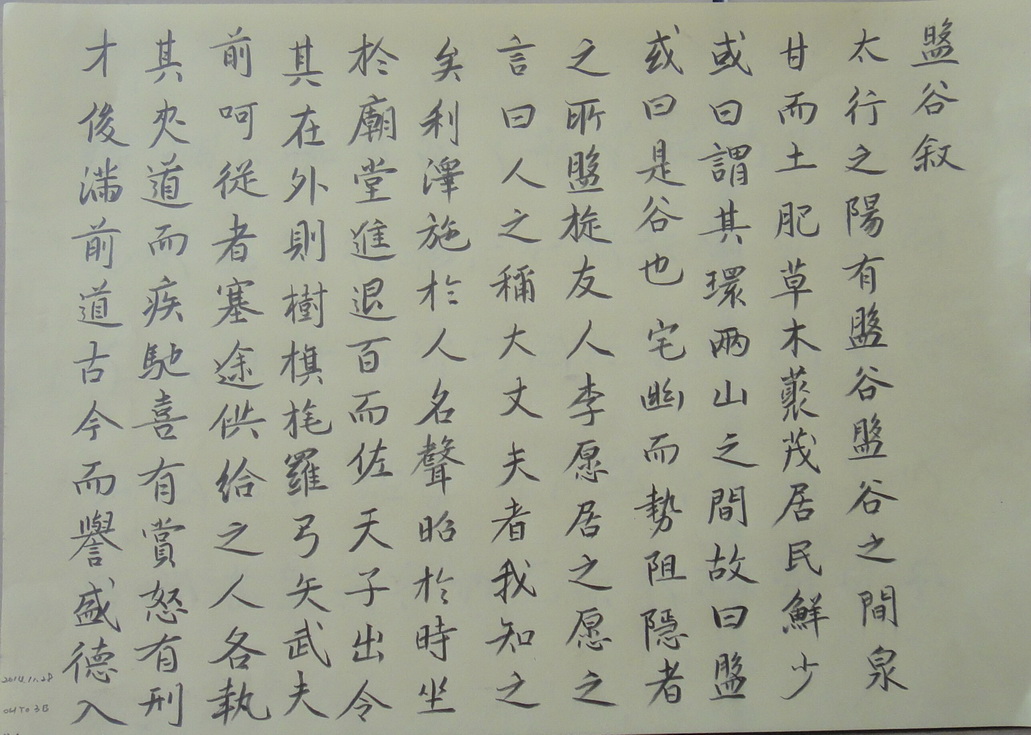 盤谷叙
太行之陽有盤谷盤谷之間泉
甘而土肥草木蘩茂居民鮮少
或曰謂其環兩山之間故曰盤
或曰是谷也宅幽而勢阻隱者
之所盤旋友人李愿居之愿之
言曰人之稱大丈夫者我知之
矣利澤施於人名聲昭於時坐
於廟堂進退百而佐天子出令
其在外則樹旗旄羅弓矢武夫
前呵從者塞途供給之人各執
其夾道而疾馳喜有賞怒有刑
才俊滿前道古今而譽盛德入
2014.11.28